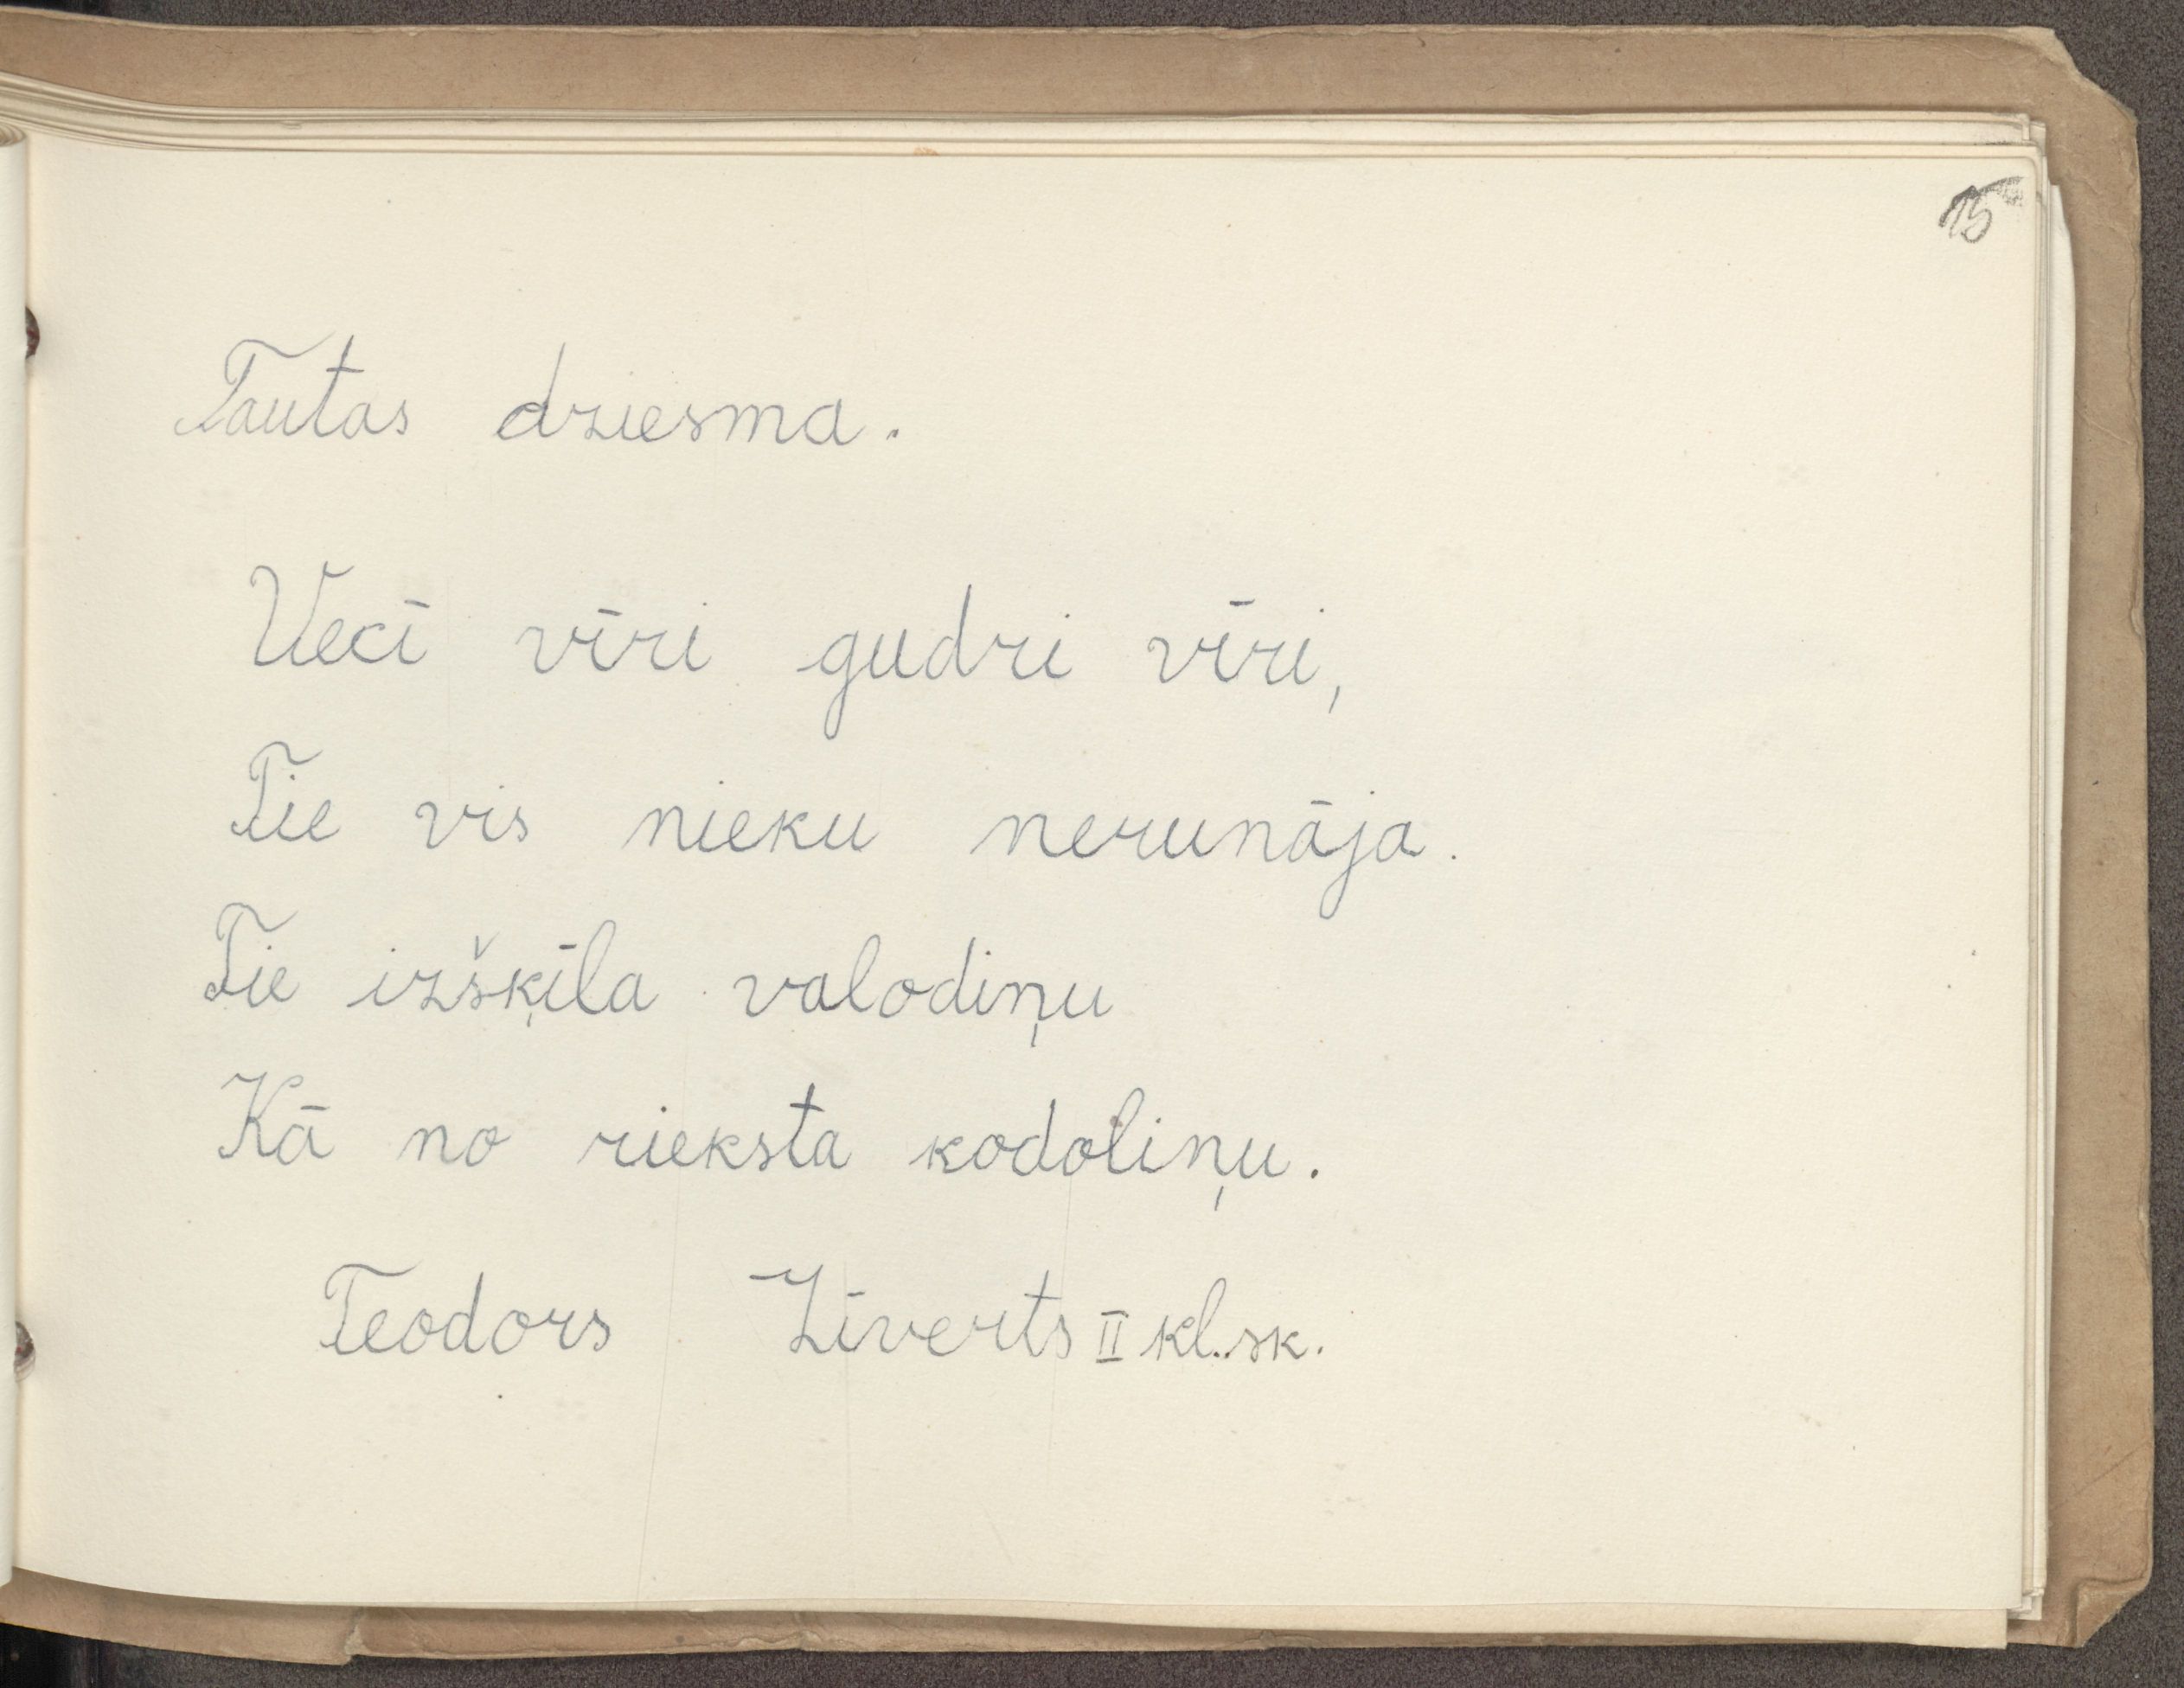 15
Tautas dziesma.
Veci vīri gudri vīri,
Tie vis nieku nerunāja.
Tie izšķīla valodiņu
Kā no rieksta kodoliņu.
Teodors Zīverts II kl. sk.